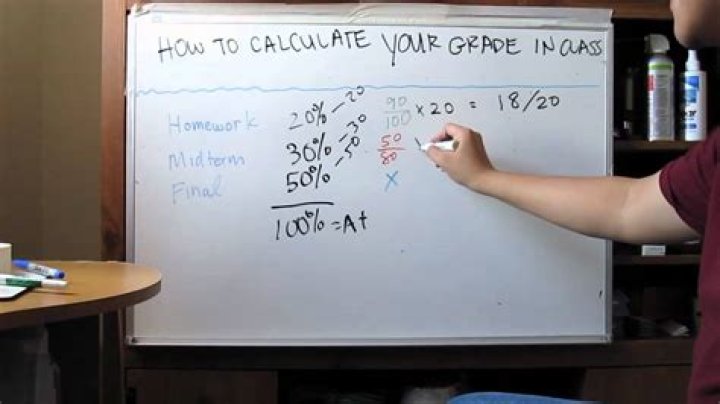 HOW TO CALCULATE YOUR GRADE IN CLASS
Homework 20% - 20 90/100 × 20 = 18/20
Midterm 30% - 30 50/80 ×
Final 50% - 50 X
100% = A+